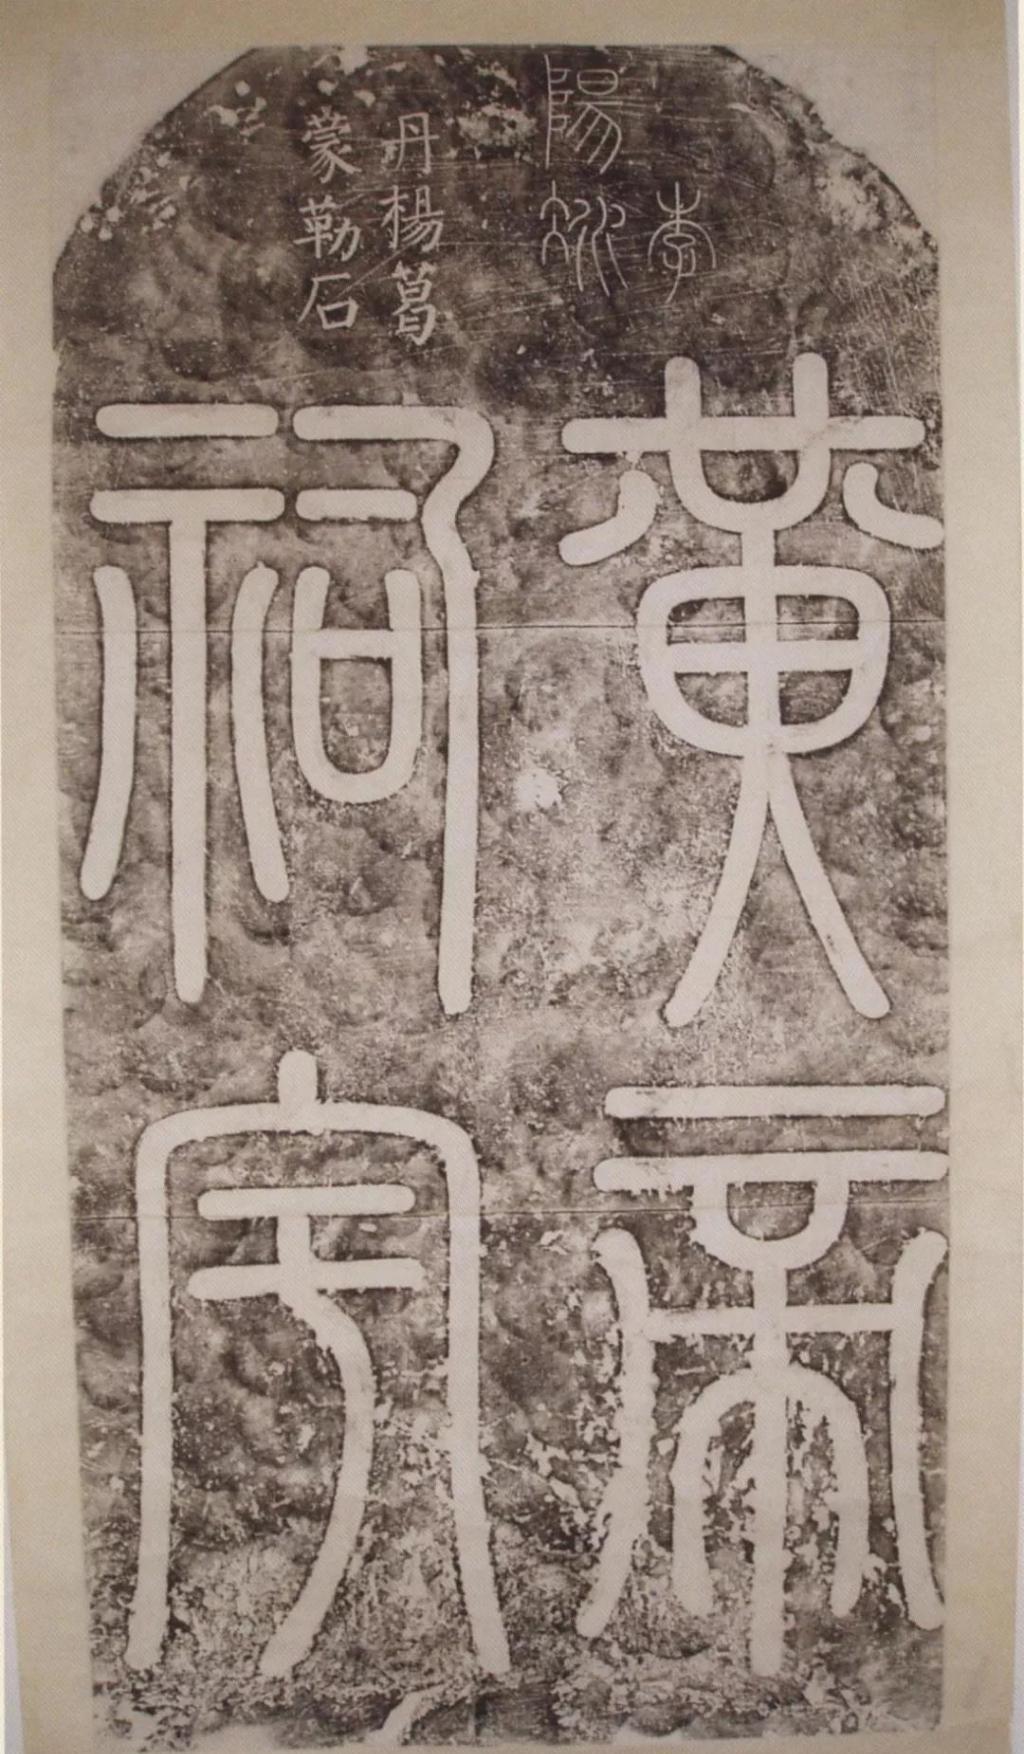 李
陽冰
丹楊葛
蒙勒石
黃帝
祠宇